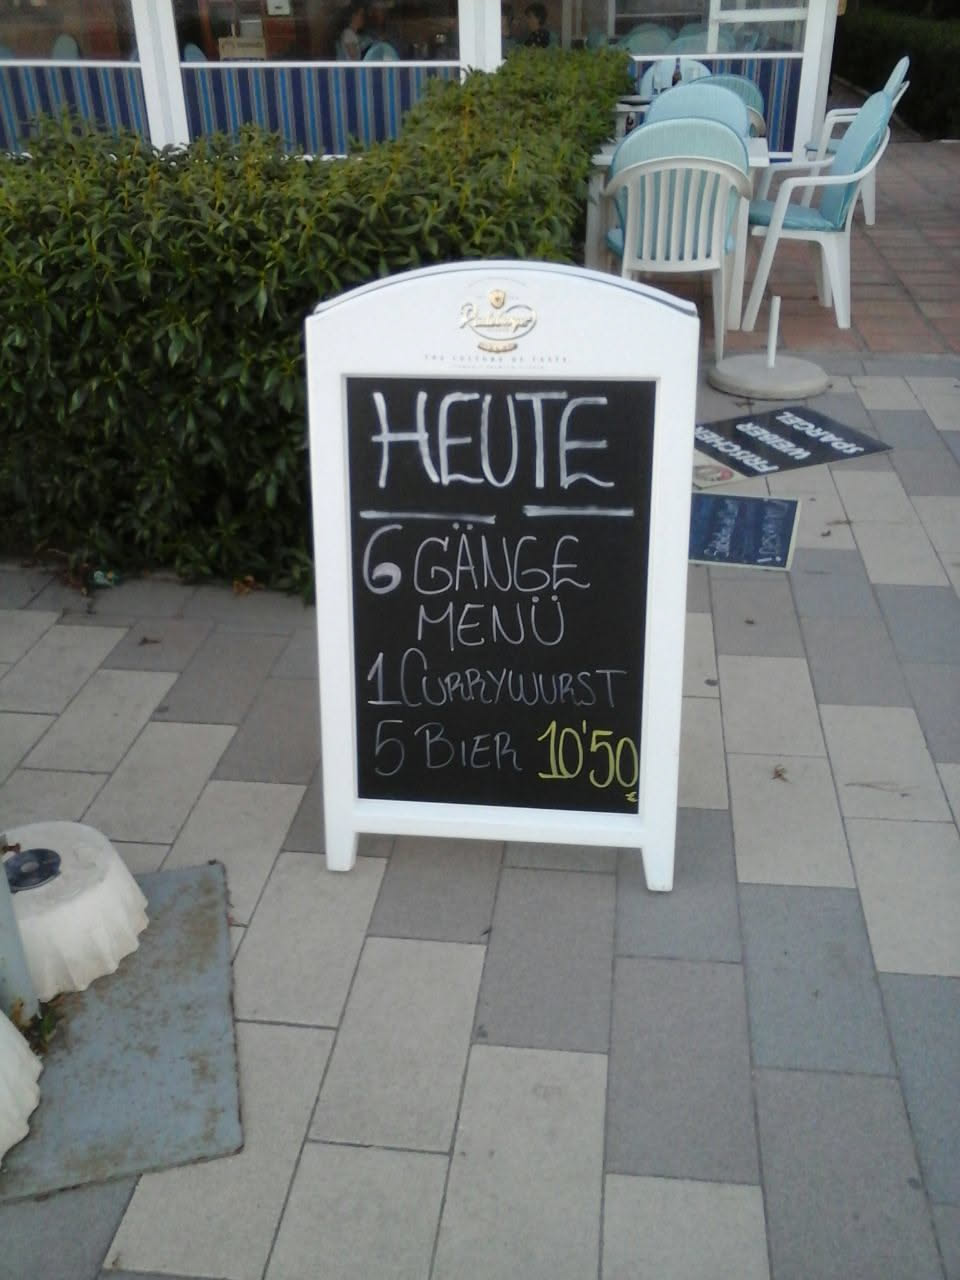 Radeberger
THE CULTURE OF TASTE
HEUTE
6 GÄNGE
MENÜ
1 CURRYWURST
5 BIER 10'50
€
FRISCHER
WEIßER
SPARGEL